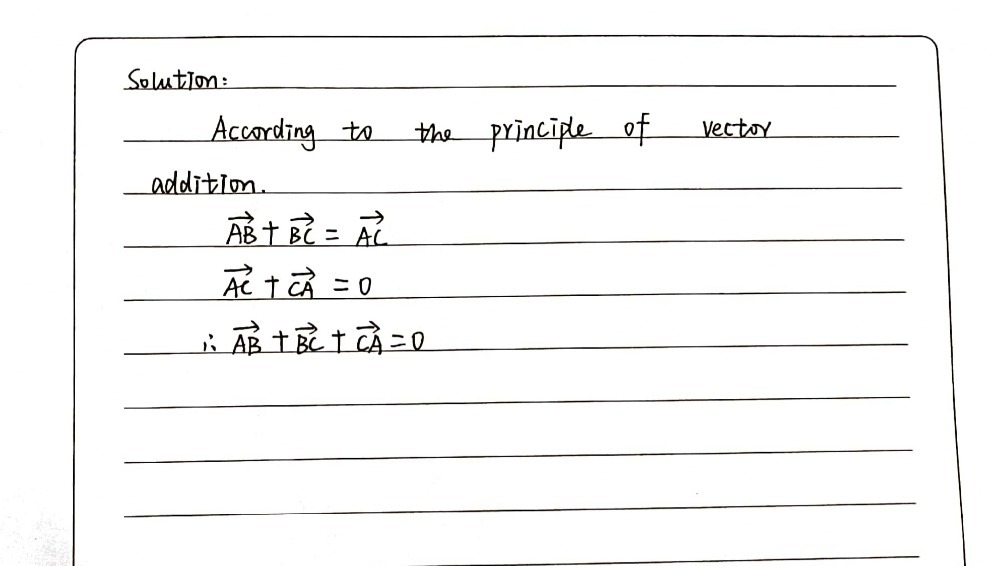 Solution:
According to the principle of vector
addition.
$\overrightarrow{AB} + \overrightarrow{BC} = \overrightarrow{AC}$
$\overrightarrow{AC} + \overrightarrow{CA} = 0$
$\therefore \overrightarrow{AB} + \overrightarrow{BC} + \overrightarrow{CA} = 0$